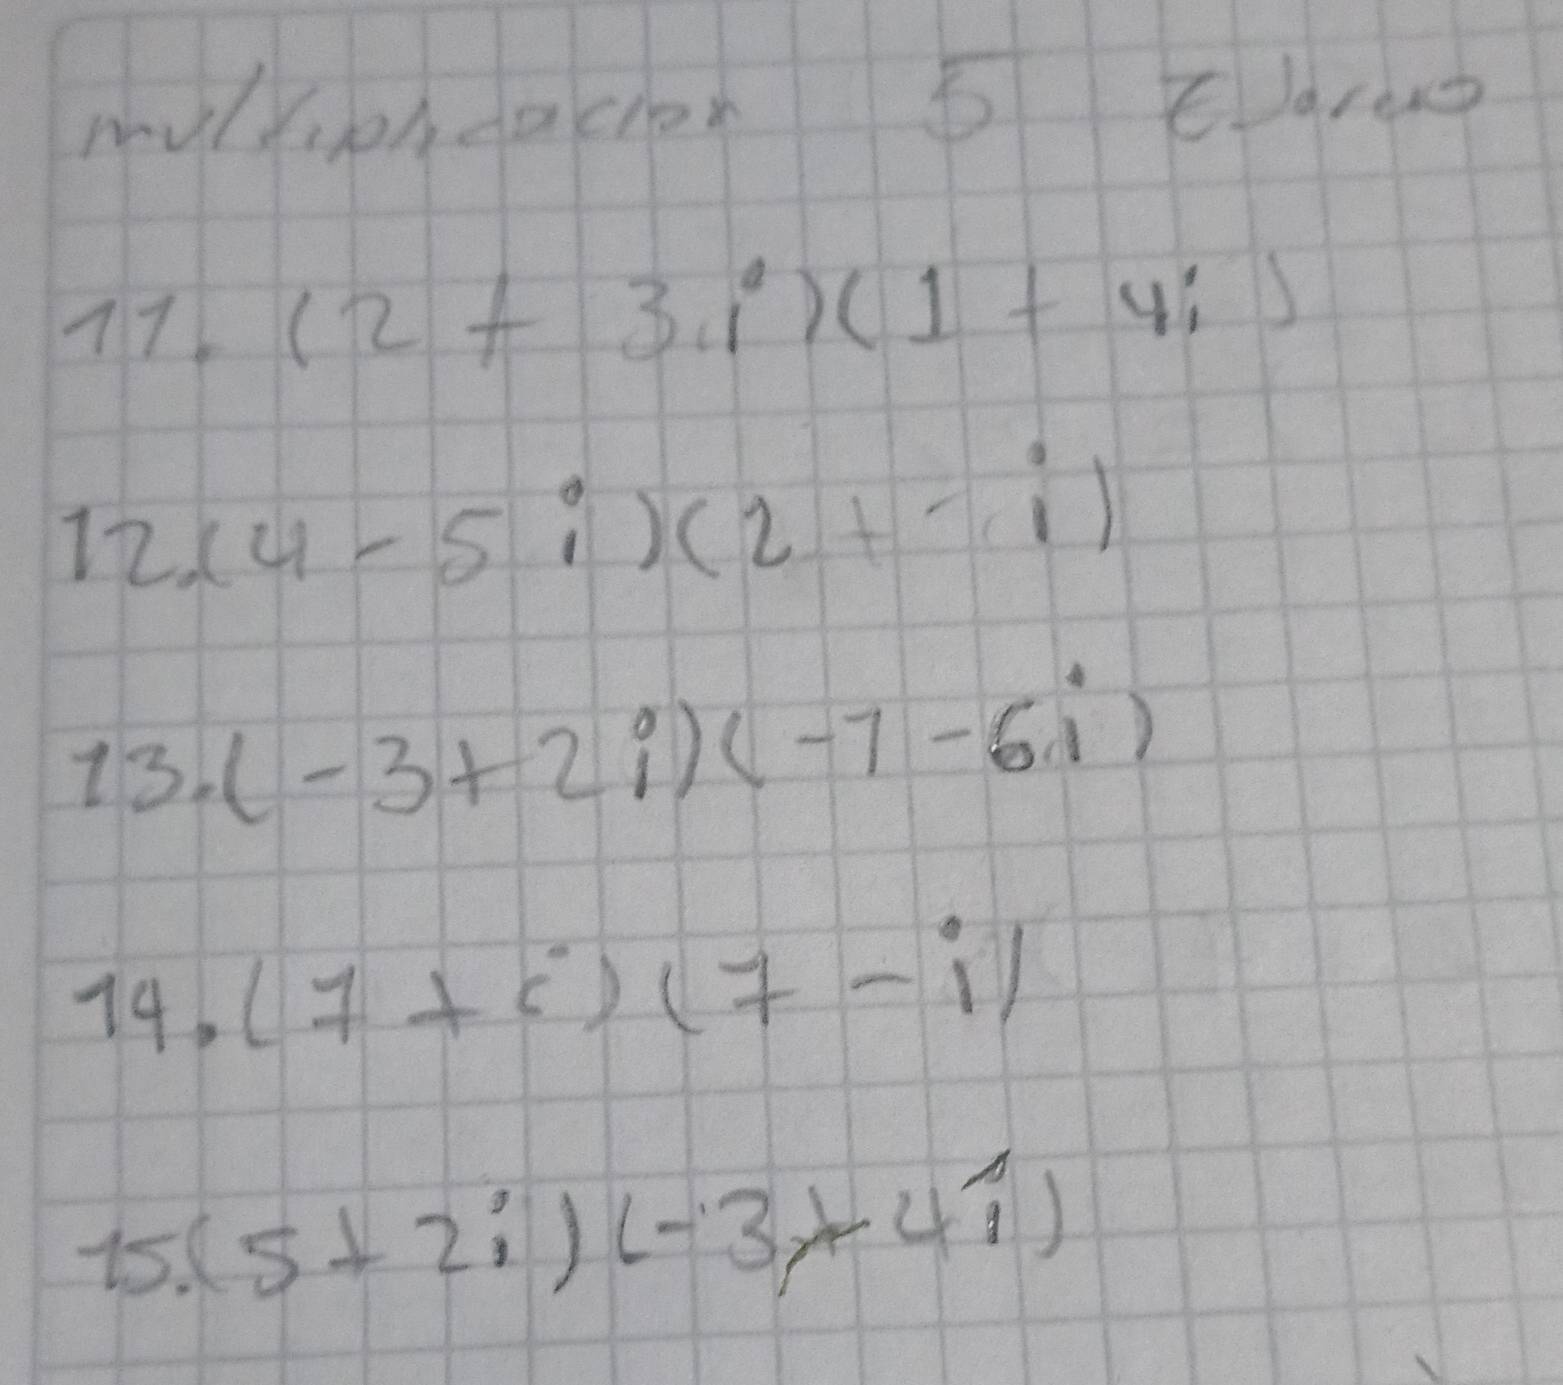 multiplicacion 5 EJercio
11. (2 + 3i)(1 + 4i)
12. (4 - 5i)(2 + - i)
13. (-3 + 2i)(-1 - 6i)
14. (7 + i)(7 - i)
15. (5 + 2i)(-3 + 4i)